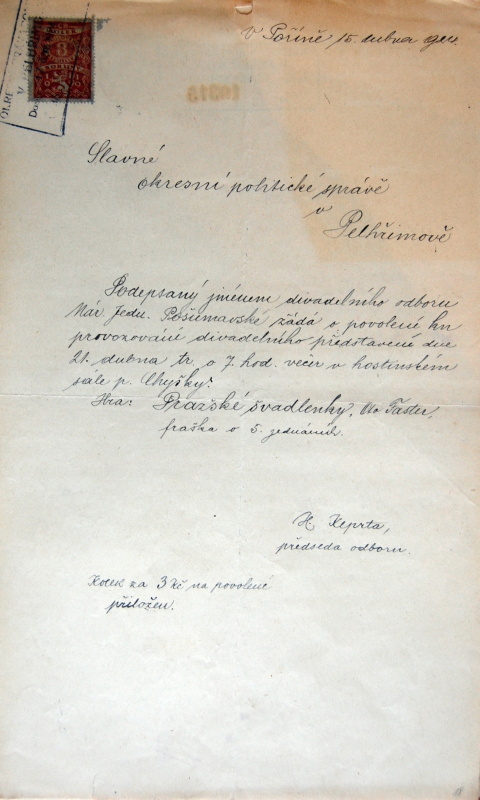 V Poříně 15. dubna
Slavné
okresní politické správě
v
Pelhřimově
Podepsaný jménem divadelního odboru
Nár. Jedn. Pošumavské žádá o povolené ku
provozování divadelního představené dne
21. dubna tr. o 7. hod. večer v hostinském
sále p. Chyšky:
Hra: Pražské švadlenky,
fraška o 5. jednáních.
H. Keprta,
předseda odboru.
Kolek za 3 Kč na povolené
přiložen.
10313